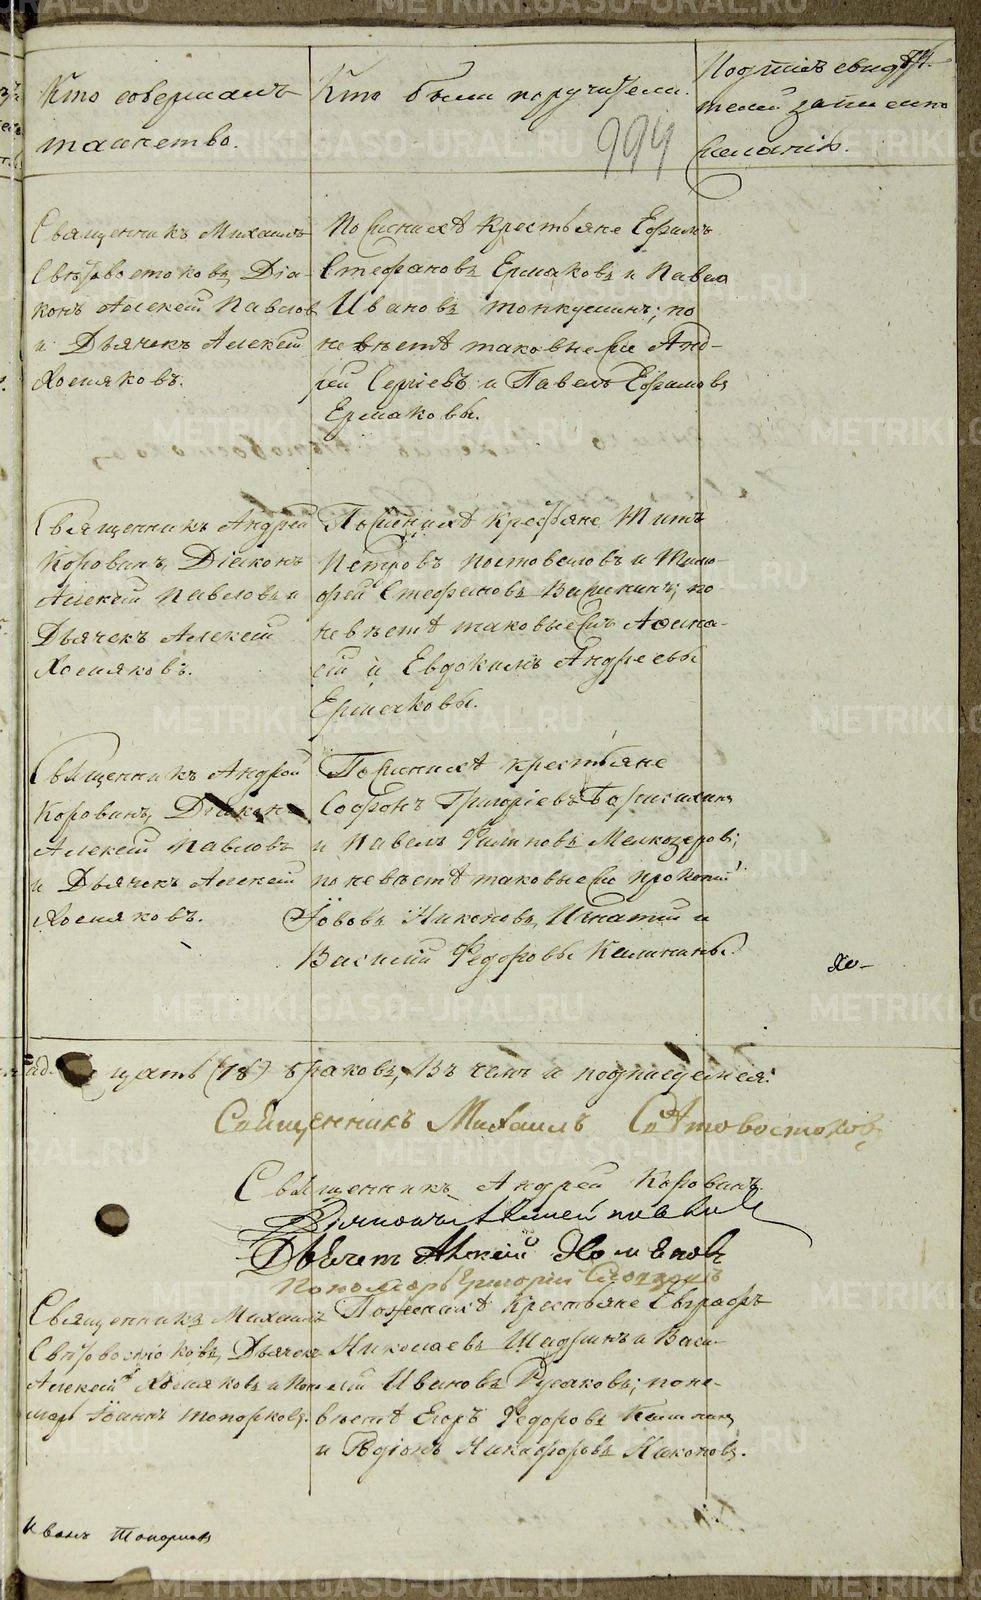 Кто совершалъ
таинство.
Кто были поручители.
994
Подпись свидѣ-
телей записи по
желанію.
Священникъ Михаилъ
Свѣтовостоковъ, Діа-
конъ Алексѣй Павловъ
и Дьячекъ Алексѣй
Хомяковъ.
По женихѣ крестьяне Ефимъ
Стефановъ Ермаковъ и Павелъ
Ивановъ; по
невѣстѣ таковые же Анд-
рей Сергіевъ и Павелъ Ефимовъ
Ермаковы.
Священникъ Андрей
Коровинъ, Діаконъ
Алексѣй Павловъ и
Дьячекъ Алексѣй
Хомяковъ.
По женихѣ крестьяне Титъ
Петровъ Постоваловъ и Тимо-
фей Стефановъ; по
невѣстѣ таковые же Афана-
сій и Евдокимъ Андреевы
Ермаковы.
Священникъ Андрей
Коровинъ, Діаконъ
Алексѣй Павловъ
и Дьячекъ Алексѣй
Хомяковъ.
По женихѣ крестьяне
Софонъ Григорьевъ
и Павелъ Филиповъ Мелкозеровъ;
по невѣстѣ таковые же Прокопій
Іововъ Никоновъ, Игнатій и
Василій Федоровы Кашкины.
Хо-
цать (18) браковъ, Въ чемъ и подписуемся:
Священникъ Михаилъ Свѣтовостоковъ
Священникъ Андрей Коровинъ.
Діаконъ Алексей Павловъ
Дьячекъ Алексѣй Хомяковъ
Пономарь Григорій
Священникъ Михаилъ
Свѣтовостоковъ, Дьячекъ
Алексѣй Хомяковъ и Поно-
марь Іоаннъ Топорковъ.
По женихѣ крестьяне Евграфъ
Николаевъ Шадринъ и Васи-
лій Ивановъ Русаковъ; по не-
вѣстѣ Егоръ Федоровъ Кашкинъ
и Родіонъ Никифоровъ Никоновъ.
Иванъ Топорковъ
METRIKI.GASO-URAL.RU